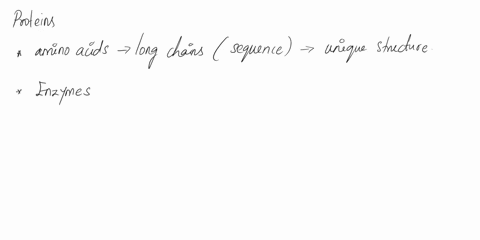 Proteins
* amino acids → long chains (sequence) → unique structure
* Enzymes